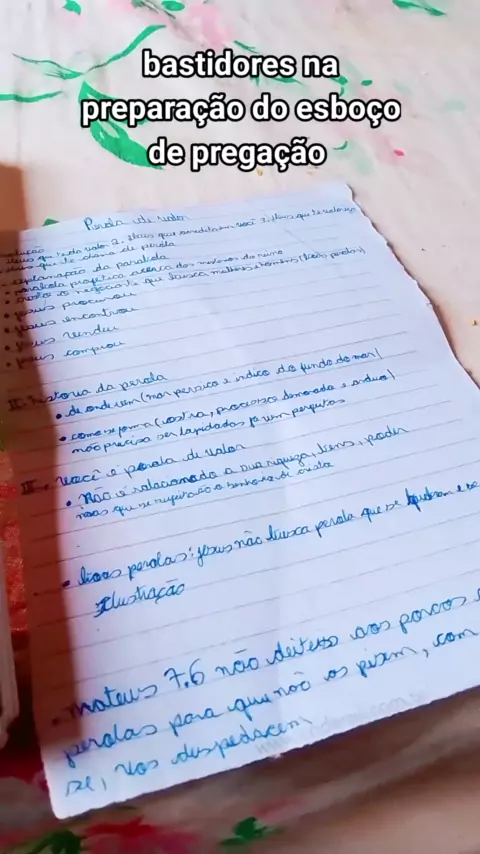 bastidores na
preparação do esboço
de pregação
Perola de valor
Deus que te da valor 2. Deus que acredita em você 3. Deus que te valoriza
Deus que te chama de perola
explanação da parabola
• parabola profética acerca dos misterios do reino
• cristo é o negociante que busca melhores homens (boas perolas)
• jesus procurou
• jesus encontrou
• jesus vendeu
• jesus comprou
II. historia da perola
• de onde vem (mar persico e indico do fundo do mar)
• como se forma (ostra, processo demorado e arduo)
não precisa ser lapidadas ja vem perfeitas
III. você é perola de valor
• Não é relacionado a sua riqueza, bens, poder
mas que se a senhor de cristo
• boas perolas: jesus não busca perola que se quebram e se
Ilustração
• mateus 7.6 não deiteis aos porcos
perolas para que não os pisem, com
se, vos despedacem